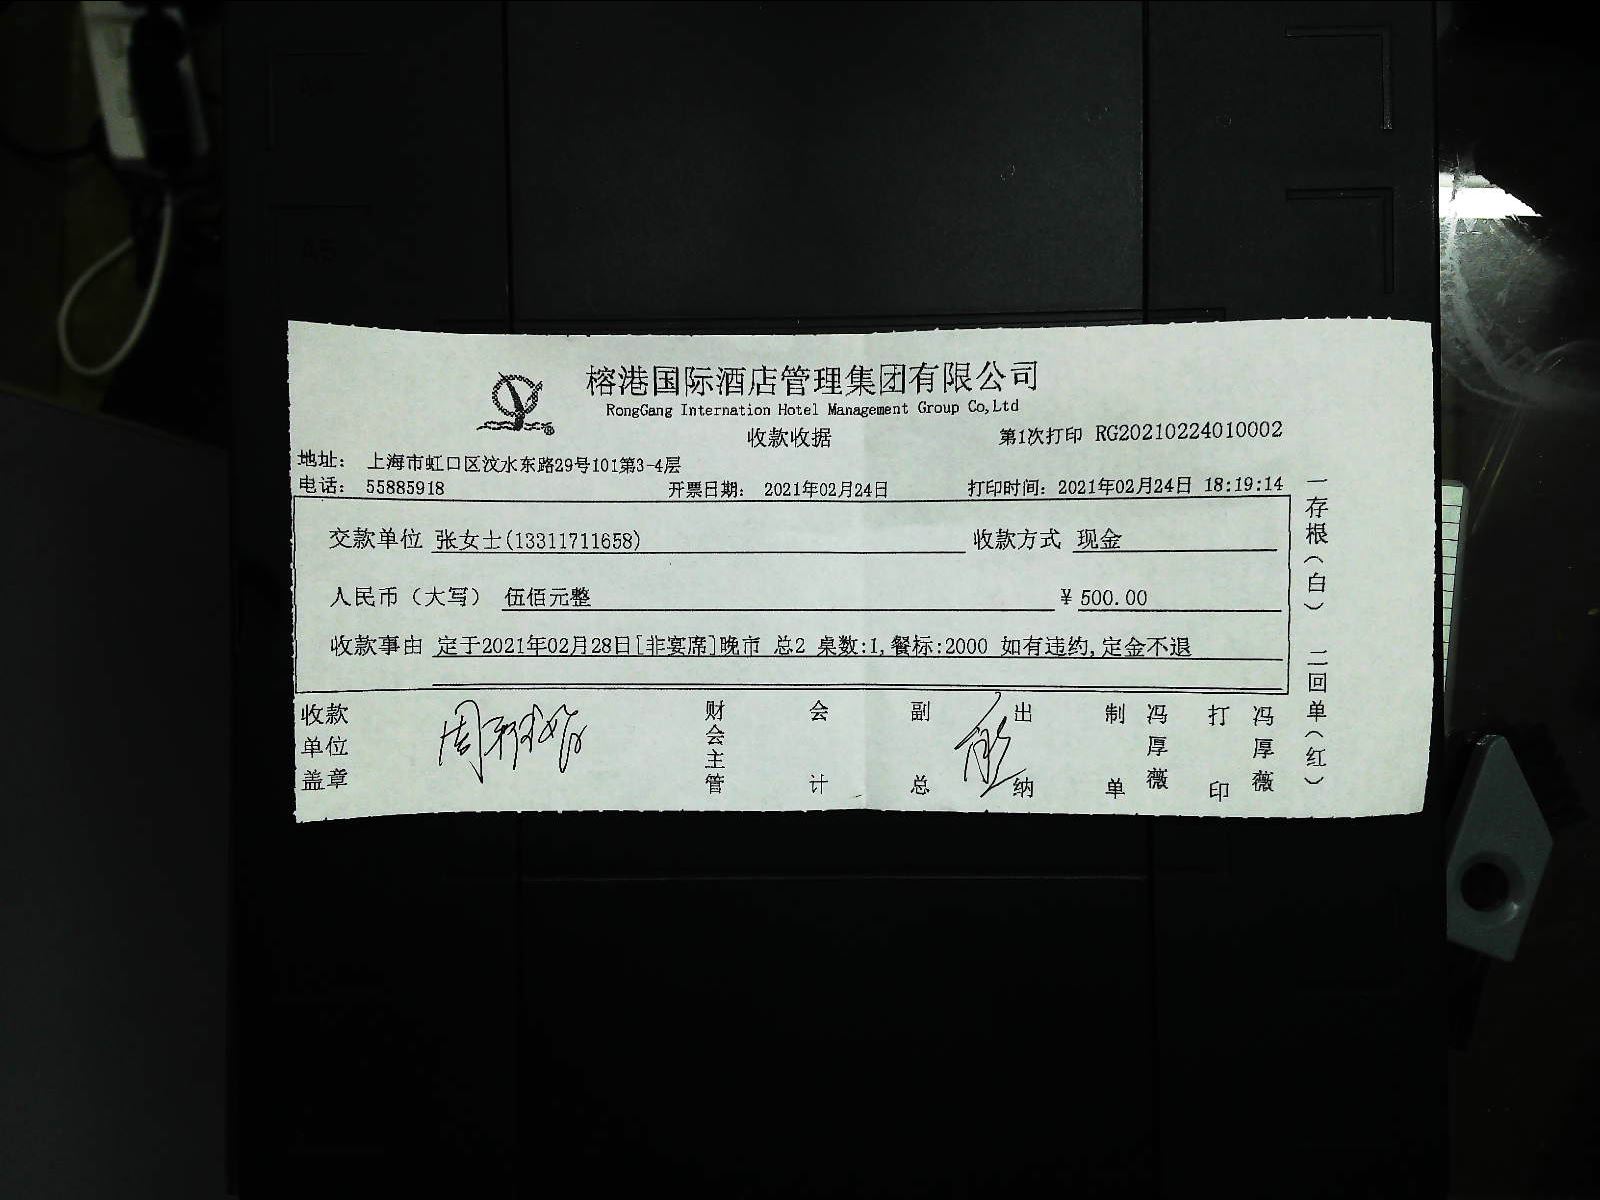 榕港国际酒店管理集团有限公司
RongGang Internation Hotel Management Group Co,Ltd
收款收据
第1次打印 RG20210224010002
地址: 上海市虹口区汶水东路29号101第3-4层
电话: 55885918 开票日期: 2021年02月24日 打印时间: 2021年02月24日 18:19:14
交款单位 张女士(13311711658) 收款方式 现金
人民币（大写） 伍佰元整 ¥ 500.00
收款事由 定于2021年02月28日[非宴席]晚市 总2 桌数:1,餐标:2000 如有违约,定金不退
收款单位盖章 财会主管 会计 副总 出纳 制单 冯厚薇 打印 冯厚薇
一存根（白） 二回单（红）
A5